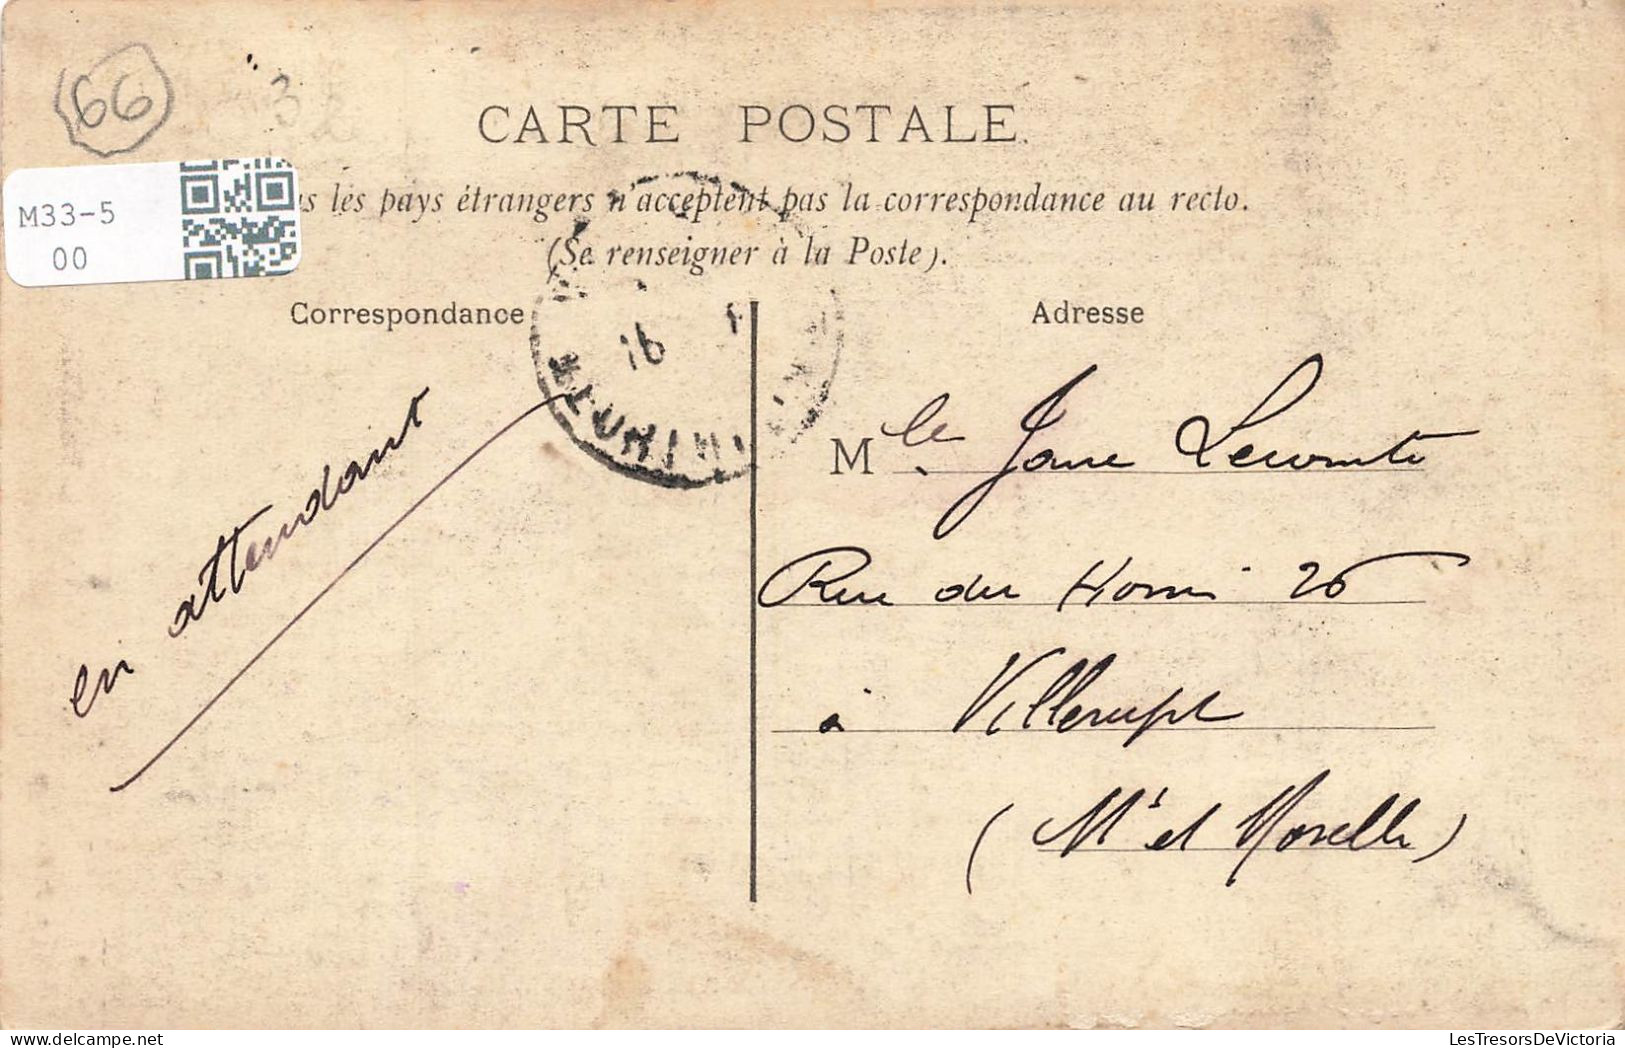 66
3
CARTE POSTALE.
M33-5
00
les pays étrangers n'acceptent pas la correspondance au recto.
(Se renseigner à la Poste).
Correspondance
Adresse
16
en attendant
Mlle Jane Lecomte
Rue du 26
à Villerupt
(Mthe et Moselle)
LesTresorsDeVictoria